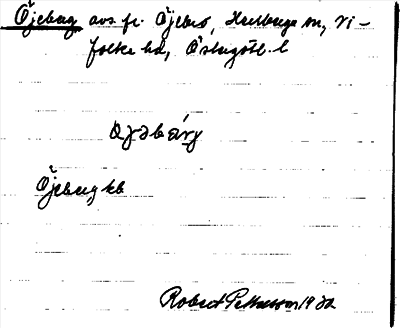 Öjeberg avs. fr. Öjebro, Herrberga sn, Vi-
folka hd, Östergötl. l
Öjeberg kb
Robert Pettersson 1932